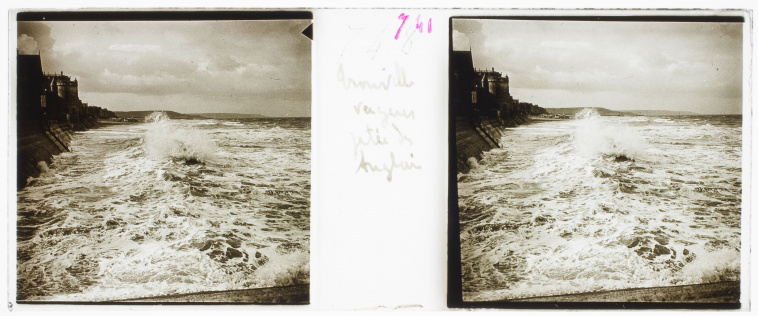 741
Trouville
vagues
jetée des
Anglais